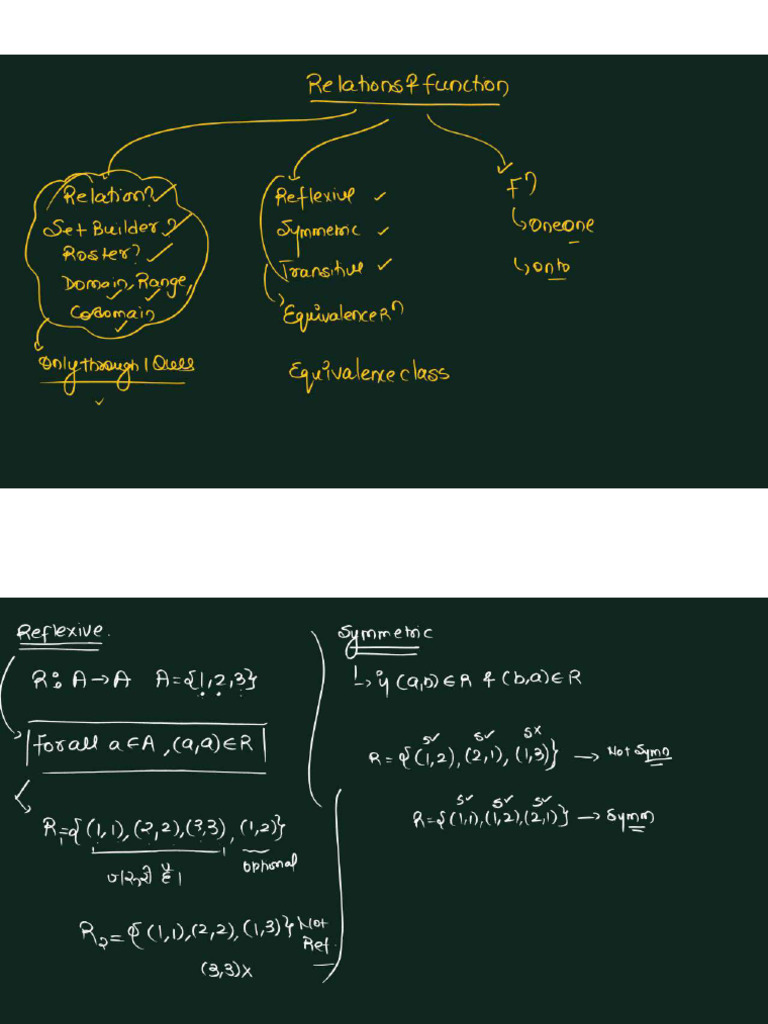 Relations & function
Relation?
Set Builder?
Roster?
Domain, Range,
Codomain
Only through 1 Ques
Reflexive
Symmetric
Transitive
Equivalence Rⁿ
Equivalence class
Fⁿ
one one
onto
Reflexive.
R: A→A A={1,2,3}
For all a∈A, (a,a)∈R
R₁={(1,1),(2,2),(3,3),(1,2)}
optional
R₂={(1,1),(2,2),(1,3)} Not
Ref.
(3,3)x
Symmetric
if (a,b)∈R & (b,a)∈R
S✓ S✓ Sx
R={(1,2),(2,1),(1,3)} → Not Symm
S✓ S✓ S✓
R={(1,1),(1,2),(2,1)} → Symm